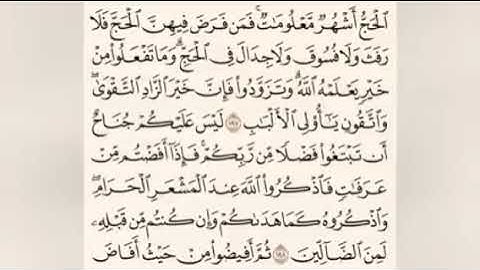 ٱلْحَجُّ أَشْهُرٌ مَّعْلُومَٰتٌ ۚ فَمَن فَرَضَ فِيهِنَّ ٱلْحَجَّ فَلَا
رَفَثَ وَلَا فُسُوقَ وَلَا جِدَالَ فِى ٱلْحَجِّ ۗ وَمَا تَفْعَلُوا۟ مِنْ
خَيْرٍ يَعْلَمْهُ ٱللَّهُ ۗ وَتَزَوَّدُوا۟ فَإِنَّ خَيْرَ ٱلزَّادِ ٱلتَّقْوَىٰ ۚ
وَٱتَّقُونِ يَٰٓأُو۟لِى ٱلْأَلْبَٰبِ ١٩٧ لَيْسَ عَلَيْكُمْ جُنَاحٌ
أَن تَبْتَغُوا۟ فَضْلًا مِّن رَّبِّكُمْ ۚ فَإِذَآ أَفَضْتُم مِّنْ
عَرَفَٰتٍ فَٱذْكُرُوا۟ ٱللَّهَ عِندَ ٱلْمَشْعَرِ ٱلْحَرَامِ ۖ
وَٱذْكُرُوهُ كَمَا هَدَىٰكُمْ وَإِن كُنتُم مِّن قَبْلِهِۦ
لَمِنَ ٱلضَّآلِّينَ ١٩٨ ثُمَّ أَفِيضُوا۟ مِنْ حَيْثُ أَفَاضَ